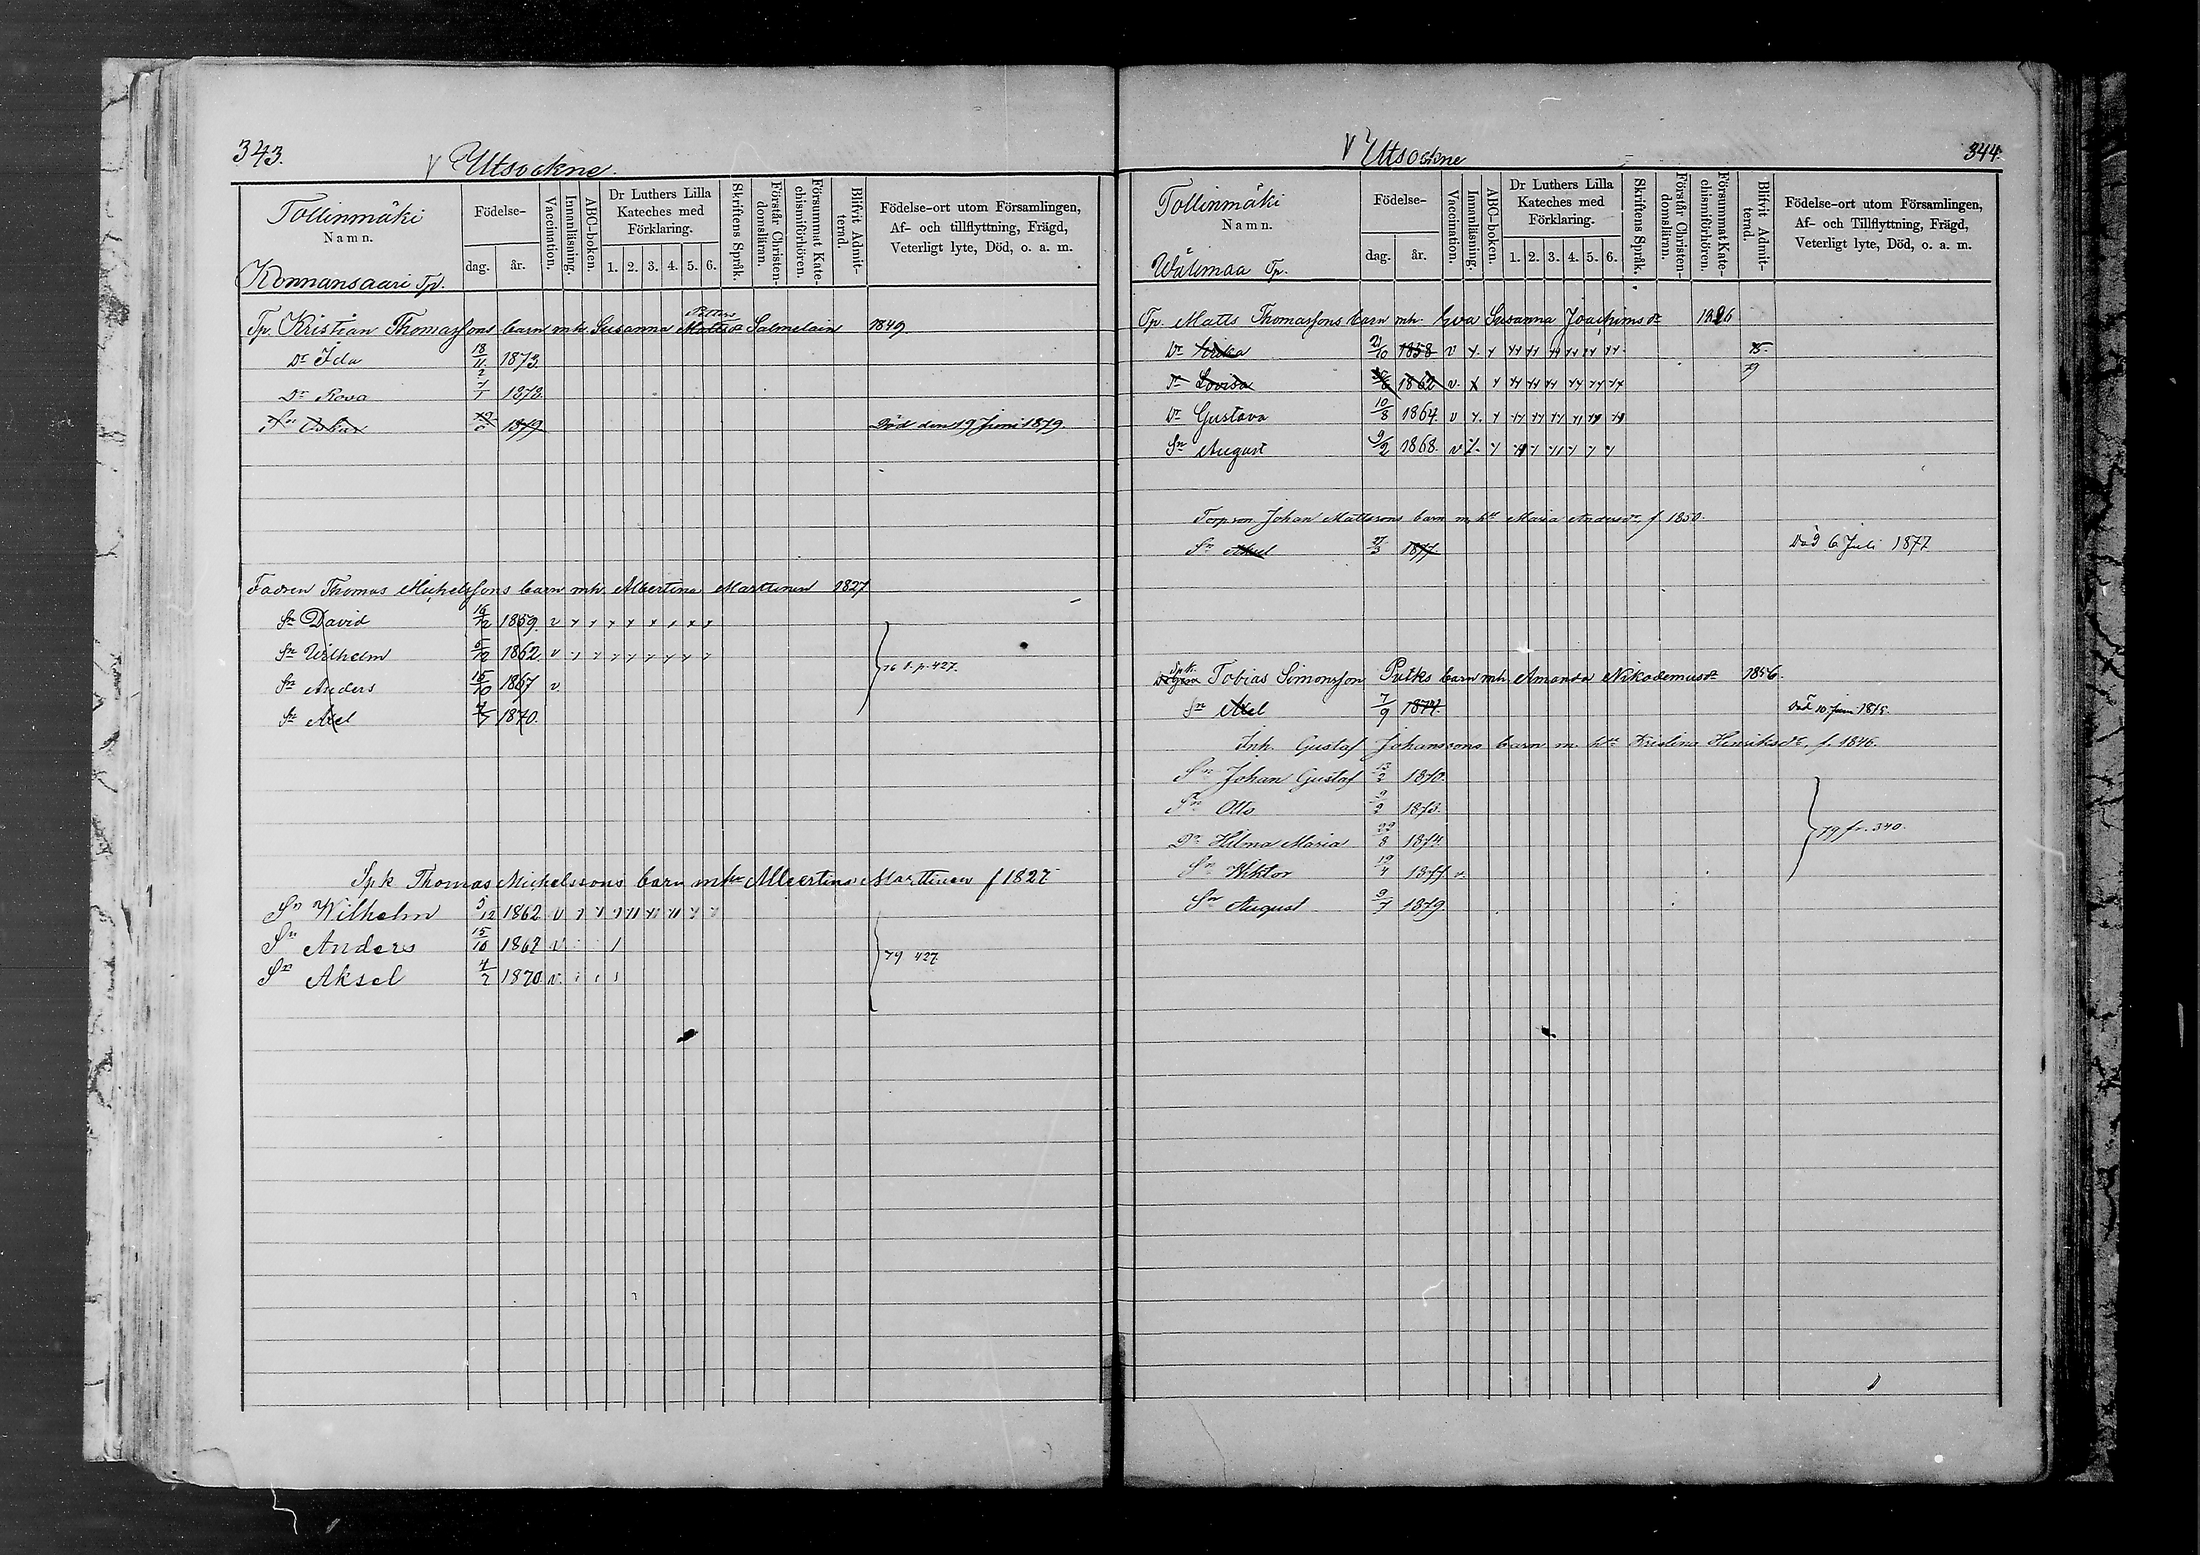 343.
V Utsockne.
Tollinmäki
Namn.
Konnansaari Tp.
Födelse-
dag.
år.
Vaccination.
Innanläsning.
ABC-boken.
Dr Luthers Lilla
Kateches med
Förklaring.
1. 2. 3. 4. 5. 6.
Skriftens Språk.
Förstår Christen-
domsläran.
Försummat Kate-
chismiförhören.
Blifvit Admit-
terad.
Födelse-ort utom Församlingen,
Af- och tillflyttning, Frägd,
Veterligt lyte, Död, o. a. m.
Tp. Kristian Thomassons barn mh. Susanna Salmelain 1849
Dr Ida 18/11 1873.
Dr Rosa 1878.
Sn Oskar 1879 Död den 19 Juni 1879.
Fadren Thomas Michelssons barn mh. Albertina Marttinen 1827
Sn David 16/12 1859. v
Sn Wilhelm 5/12 1862. v
Sn Anders 15/10 1867 v.
Sn Axel 4/7 1870.
76 p. 427.
Spk Thomas Michelssons barn mhu Albertina Marttinen f 1827
Sn Wilhelm 5/12 1862 v
Sn Anders 15/10 1867 v
Sn Aksel 4/7 1870 v.
79 427
V Utsockne
344.
Tollinmäki
Namn.
Wälimaa Tp.
Födelse-
dag.
år.
Vaccination.
Innanläsning.
ABC-boken.
Dr Luthers Lilla
Kateches med
Förklaring.
1. 2. 3. 4. 5. 6.
Skriftens Språk.
Förstår Christen-
domsläran.
Försummat Kate-
chismiförhören.
Blifvit Admit-
terad.
Födelse-ort utom Församlingen,
Af- och Tillflyttning, Frägd,
Veterligt lyte, Död, o. a. m.
Tp. Matts Thomassons barn mh. Eva Susanna Joachimsdr
Dr 21/10 1858 v
Dr Lovisa 1862 v. 79
Dr Gustava 10/8 1864. v
Sn August 9/2 1868. v
Torp.son Johan Mattssons barn m. hu Maria Andersdr f 1850.
Sn Axel 1877. Död 6 Juli 1877
Spk. Tobias Simonsson Pulks barn mh Amanda Nikodemusdr 1856.
Sn Axel 7/9 1874. Död 10 Juni 1875.
Inh. Gustaf Johanssons barn m. hu Kristina Henriksdr, f. 1846.
Sn Johan Gustaf 13/2 1870.
Sn Otto 9/2 1873.
Dr Hilma Maria 22/8 1874.
Sn Wiktor 19/4 1877 v.
Sn August 9/7 1879.
79 fr. 340.